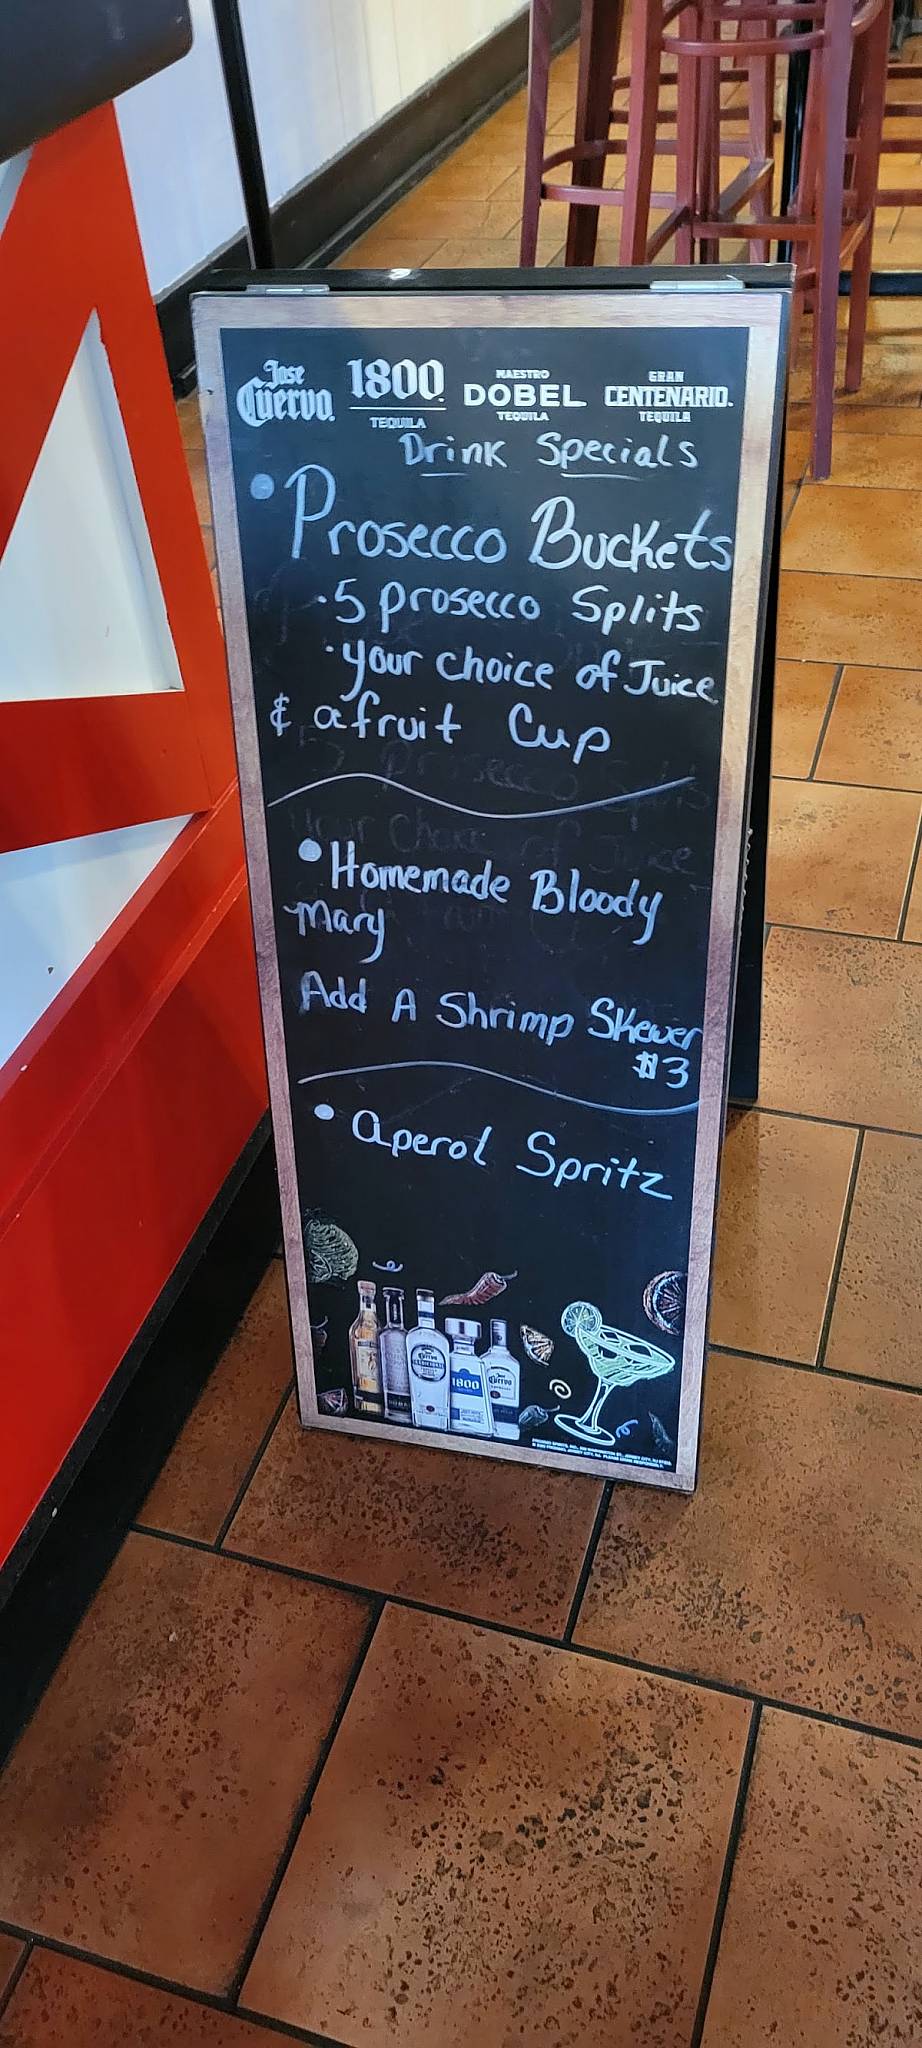 Jose Cuervo.
1800.
TEQUILA
MAESTRO
DOBEL
TEQUILA
GRAN
CENTENARIO.
TEQUILA
Drink Specials
• Prosecco Buckets
· 5 prosecco Splits
· your choice of Juice
& a fruit Cup
• Homemade Bloody
Mary
Add A Shrimp Skewer
$3
• Aperol Spritz
Cuervo
TRADICIONAL
1800
Jose
Cuervo